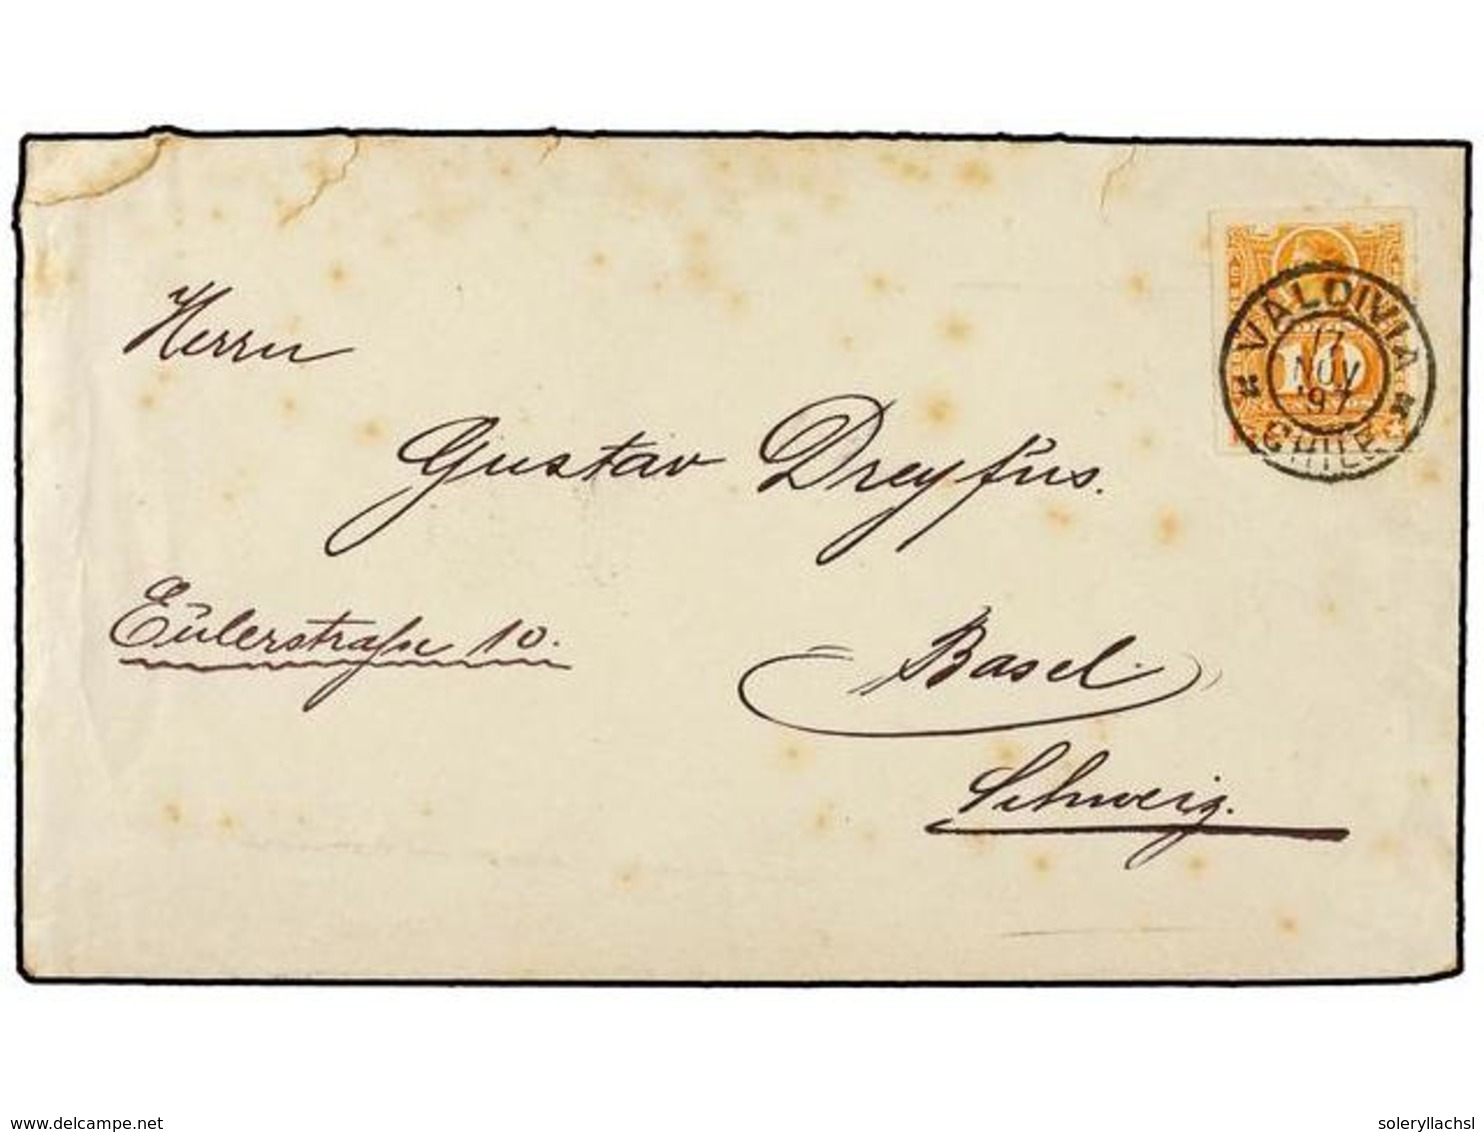 VALDIVIA
17
NOV
'97
CHILE
10
Herrn
Gustav Dreyfus.
Eulerstraße 10.
Basel.
Schweiz.
www.delcampe.net
soleryllachsl